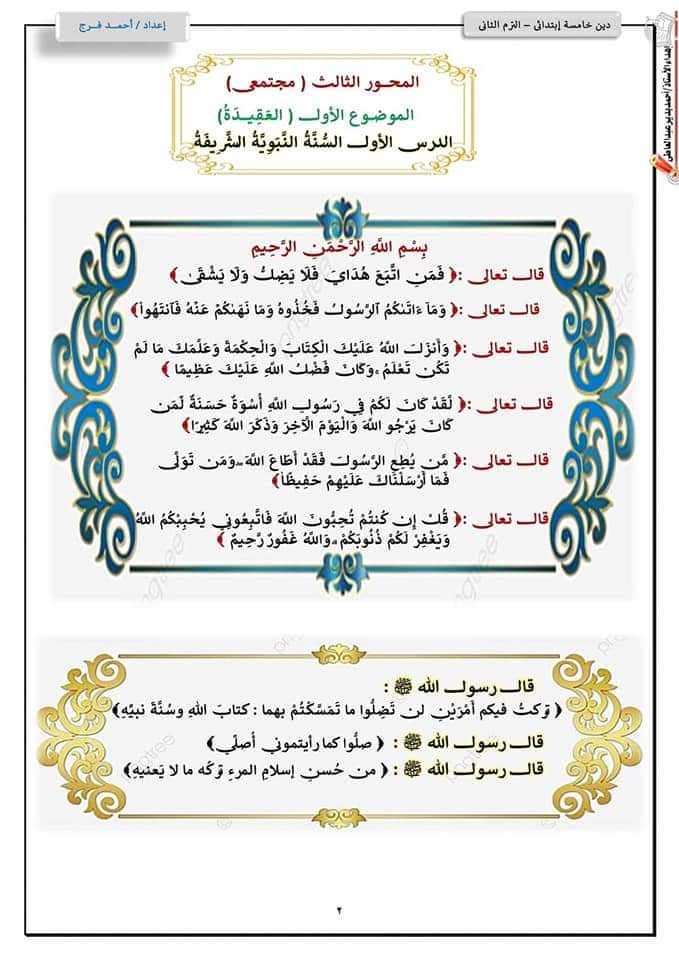 دين خامسة إبتدائى – الترم الثانى
إعداد / أحمـد فـرج
إهداء الأستاذ/أحمد بدير عبدالعاطى
المحـور الثالث ( مجتمعى )
الموضـوع الأول ( العَقِيـدَةُ )
الدرس الأول السُّنَّةُ النَّبَوِيَّةُ الشَّرِيفَةُ
بِسْمِ اللَّهِ الرَّحْمَنِ الرَّحِيمِ
قال تعالى :﴿ فَمَنِ اتَّبَعَ هُدَايَ فَلَا يَضِلُّ وَلَا يَشْقَى ﴾
قال تعالى :﴿ وَمَآ ءَاتَىٰكُمُ ٱلرَّسُولُ فَخُذُوهُ وَمَا نَهَىٰكُمْ عَنْهُ فَٱنتَهُواْ ﴾
قال تعالى :﴿ وَأَنْزَلَ اللَّهُ عَلَيْكَ الْكِتَابَ وَالْحِكْمَةَ وَعَلَّمَكَ مَا لَمْ
تَكُن تَعْلَمُ ۚ وَكَانَ فَضْلُ اللَّهِ عَلَيْكَ عَظِيمًا ﴾
قال تعالى :﴿ لَّقَدْ كَانَ لَكُمْ فِي رَسُولِ اللَّهِ أُسْوَةٌ حَسَنَةٌ لِّمَن
كَانَ يَرْجُو اللَّهَ وَالْيَوْمَ الْآخِرَ وَذَكَرَ اللَّهَ كَثِيرًا ﴾
قال تعالى :﴿ مَّن يُطِعِ الرَّسُولَ فَقَدْ أَطَاعَ اللَّهَ ۖ وَمَن تَوَلَّى
فَمَا أَرْسَلْنَاكَ عَلَيْهِمْ حَفِيظًا ﴾
قال تعالى :﴿ قُلْ إِن كُنتُمْ تُحِبُّونَ اللَّهَ فَاتَّبِعُونِي يُحْبِبْكُمُ اللَّهُ
وَيَغْفِرْ لَكُمْ ذُنُوبَكُمْ ۗ وَاللَّهُ غَفُورٌ رَّحِيمٌ ﴾
قال رسول الله ﷺ :
( تركتُ فيكم أَمْرَيْنِ لن تَضِلُّوا ما تَمَسَّكْتُمْ بهما : كتابَ اللهِ وسُنَّةَ نبيِّهِ )
قال رسول الله ﷺ : ( صلُّوا كما رأيتموني أُصلِّي )
قال رسول الله ﷺ : ( من حُسنِ إسلامِ المرءِ تركُه ما لا يَعنيهِ )
pngtree
٢